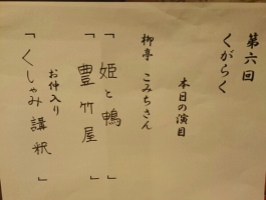 第六回
くがらく
本日の演目
柳亭 こみちさん
「姫と鴨」
「豊竹屋」
お仲入り
「くしゃみ講釈」